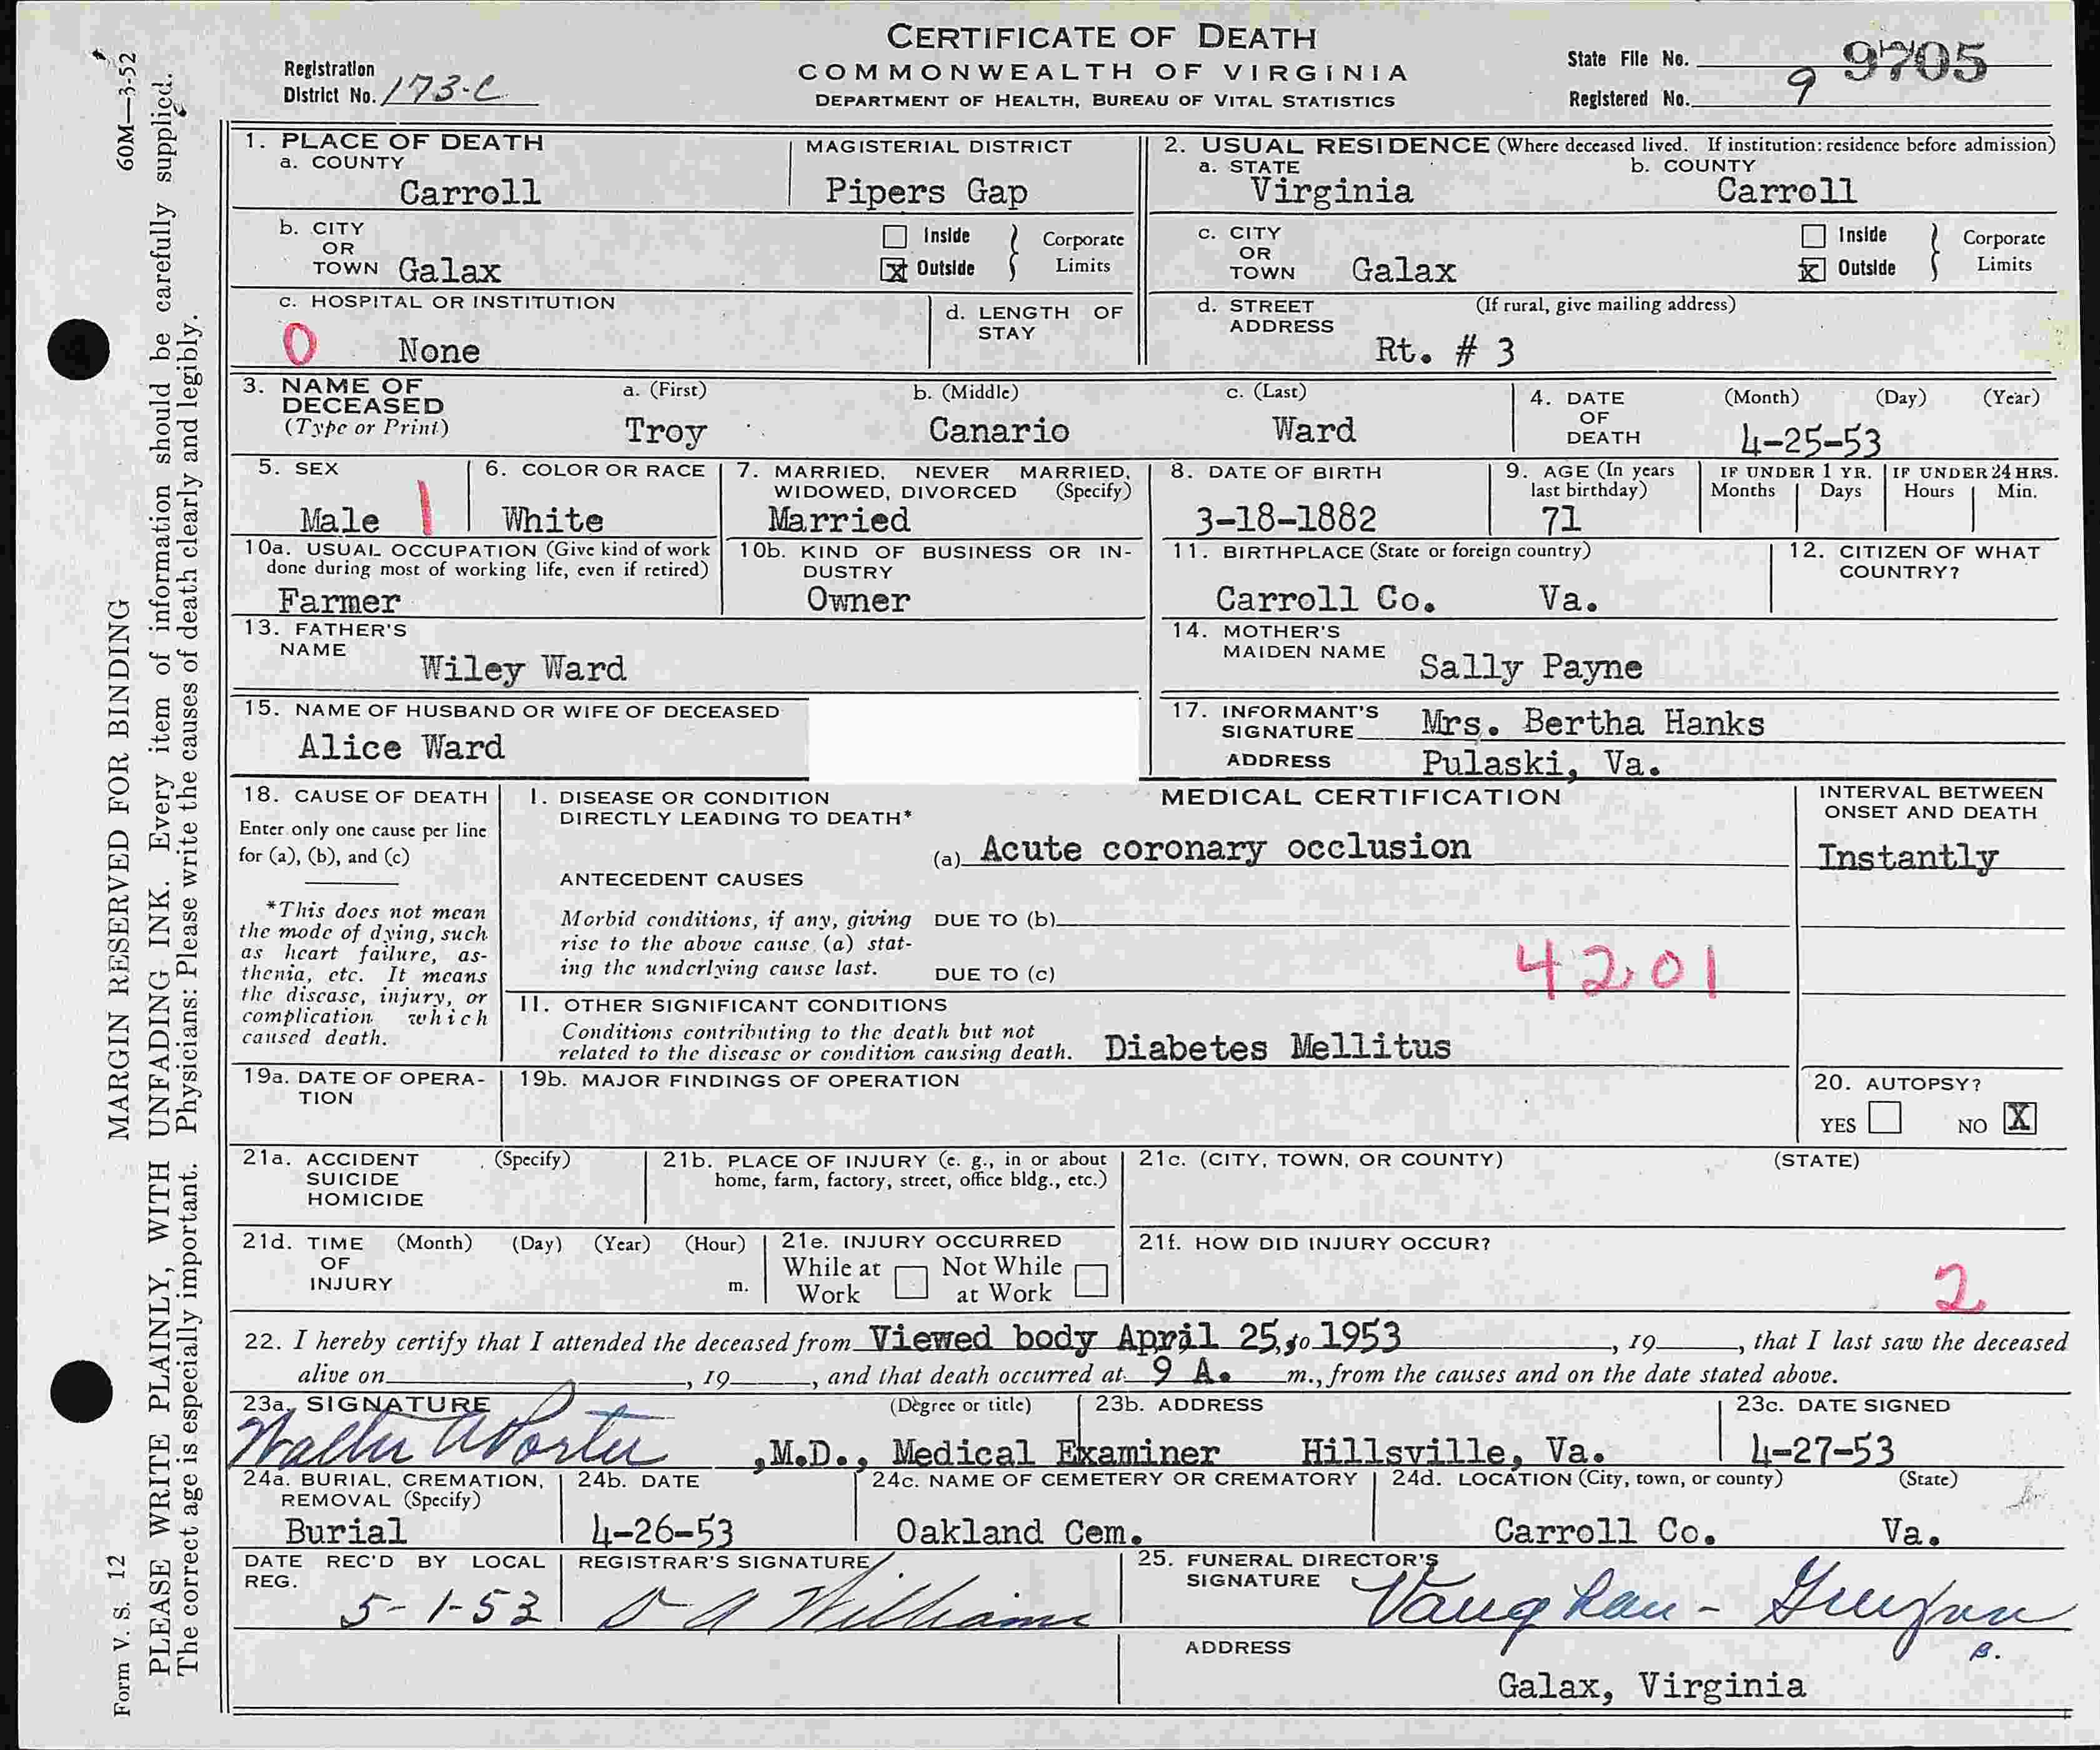 CERTIFICATE OF DEATH
COMMONWEALTH OF VIRGINIA
DEPARTMENT OF HEALTH, BUREAU OF VITAL STATISTICS
Registration
District No. 173-C
State File No. 9705
Registered No. 9
1. PLACE OF DEATH
a. COUNTY
Carroll
MAGISTERIAL DISTRICT
Pipers Gap
2. USUAL RESIDENCE (Where deceased lived. If institution: residence before admission)
a. STATE
Virginia
b. COUNTY
Carroll
b. CITY
OR
TOWN Galax
Inside
X Outside
Corporate
Limits
c. CITY
OR
TOWN Galax
Inside
X Outside
Corporate
Limits
c. HOSPITAL OR INSTITUTION
0 None
d. LENGTH OF
STAY
d. STREET
ADDRESS
(If rural, give mailing address)
Rt. # 3
3. NAME OF
DECEASED
(Type or Print)
a. (First)
Troy
b. (Middle)
Canario
c. (Last)
Ward
4. DATE
OF
DEATH
(Month) (Day) (Year)
4-25-53
5. SEX
Male 1
6. COLOR OR RACE
White
7. MARRIED, NEVER MARRIED,
WIDOWED, DIVORCED (Specify)
Married
8. DATE OF BIRTH
3-18-1882
9. AGE (In years
last birthday)
71
IF UNDER 1 YR.
Months Days
IF UNDER 24 HRS.
Hours Min.
10a. USUAL OCCUPATION (Give kind of work
done during most of working life, even if retired)
Farmer
10b. KIND OF BUSINESS OR IN-
DUSTRY
Owner
11. BIRTHPLACE (State or foreign country)
Carroll Co. Va.
12. CITIZEN OF WHAT
COUNTRY?
13. FATHER'S
NAME
Wiley Ward
14. MOTHER'S
MAIDEN NAME
Sally Payne
15. NAME OF HUSBAND OR WIFE OF DECEASED
Alice Ward
17. INFORMANT'S
SIGNATURE Mrs. Bertha Hanks
ADDRESS Pulaski, Va.
18. CAUSE OF DEATH
Enter only one cause per line
for (a), (b), and (c)
*This does not mean
the mode of dying, such
as heart failure, as-
thenia, etc. It means
the disease, injury, or
complication which
caused death.
MEDICAL CERTIFICATION
I. DISEASE OR CONDITION
DIRECTLY LEADING TO DEATH*
(a) Acute coronary occlusion
INTERVAL BETWEEN
ONSET AND DEATH
Instantly
ANTECEDENT CAUSES
Morbid conditions, if any, giving
rise to the above cause (a) stat-
ing the underlying cause last.
DUE TO (b)
DUE TO (c)
4201
II. OTHER SIGNIFICANT CONDITIONS
Conditions contributing to the death but not
related to the disease or condition causing death. Diabetes Mellitus
19a. DATE OF OPERA-
TION
19b. MAJOR FINDINGS OF OPERATION
20. AUTOPSY?
YES NO X
21a. ACCIDENT
SUICIDE
HOMICIDE
(Specify)
21b. PLACE OF INJURY (e. g., in or about
home, farm, factory, street, office bldg., etc.)
21c. (CITY, TOWN, OR COUNTY) (STATE)
21d. TIME
OF
INJURY
(Month) (Day) (Year) (Hour)
m.
21e. INJURY OCCURRED
While at
Work
Not While
at Work
21f. HOW DID INJURY OCCUR?
2
22. I hereby certify that I attended the deceased from Viewed body April 25, to 1953, 19, that I last saw the deceased
alive on, 19, and that death occurred at 9 A. m., from the causes and on the date stated above.
23a. SIGNATURE (Degree or title)
Walter A Porter, M.D., Medical Examiner
23b. ADDRESS
Hillsville, Va.
23c. DATE SIGNED
4-27-53
24a. BURIAL, CREMATION,
REMOVAL (Specify)
Burial
24b. DATE
4-26-53
24c. NAME OF CEMETERY OR CREMATORY
Oakland Cem.
24d. LOCATION (City, town, or county) (State)
Carroll Co. Va.
DATE REC'D BY LOCAL
REG.
5-1-53
REGISTRAR'S SIGNATURE
D A Williams
25. FUNERAL DIRECTOR'S
SIGNATURE
Vaughan-
B.
ADDRESS
Galax, Virginia
60M—3-52
MARGIN RESERVED FOR BINDING
PLEASE WRITE PLAINLY, WITH UNFADING INK. Every item of information should be carefully supplied.
The correct age is especially important. Physicians: Please write the causes of death clearly and legibly.
Form V. S. 12